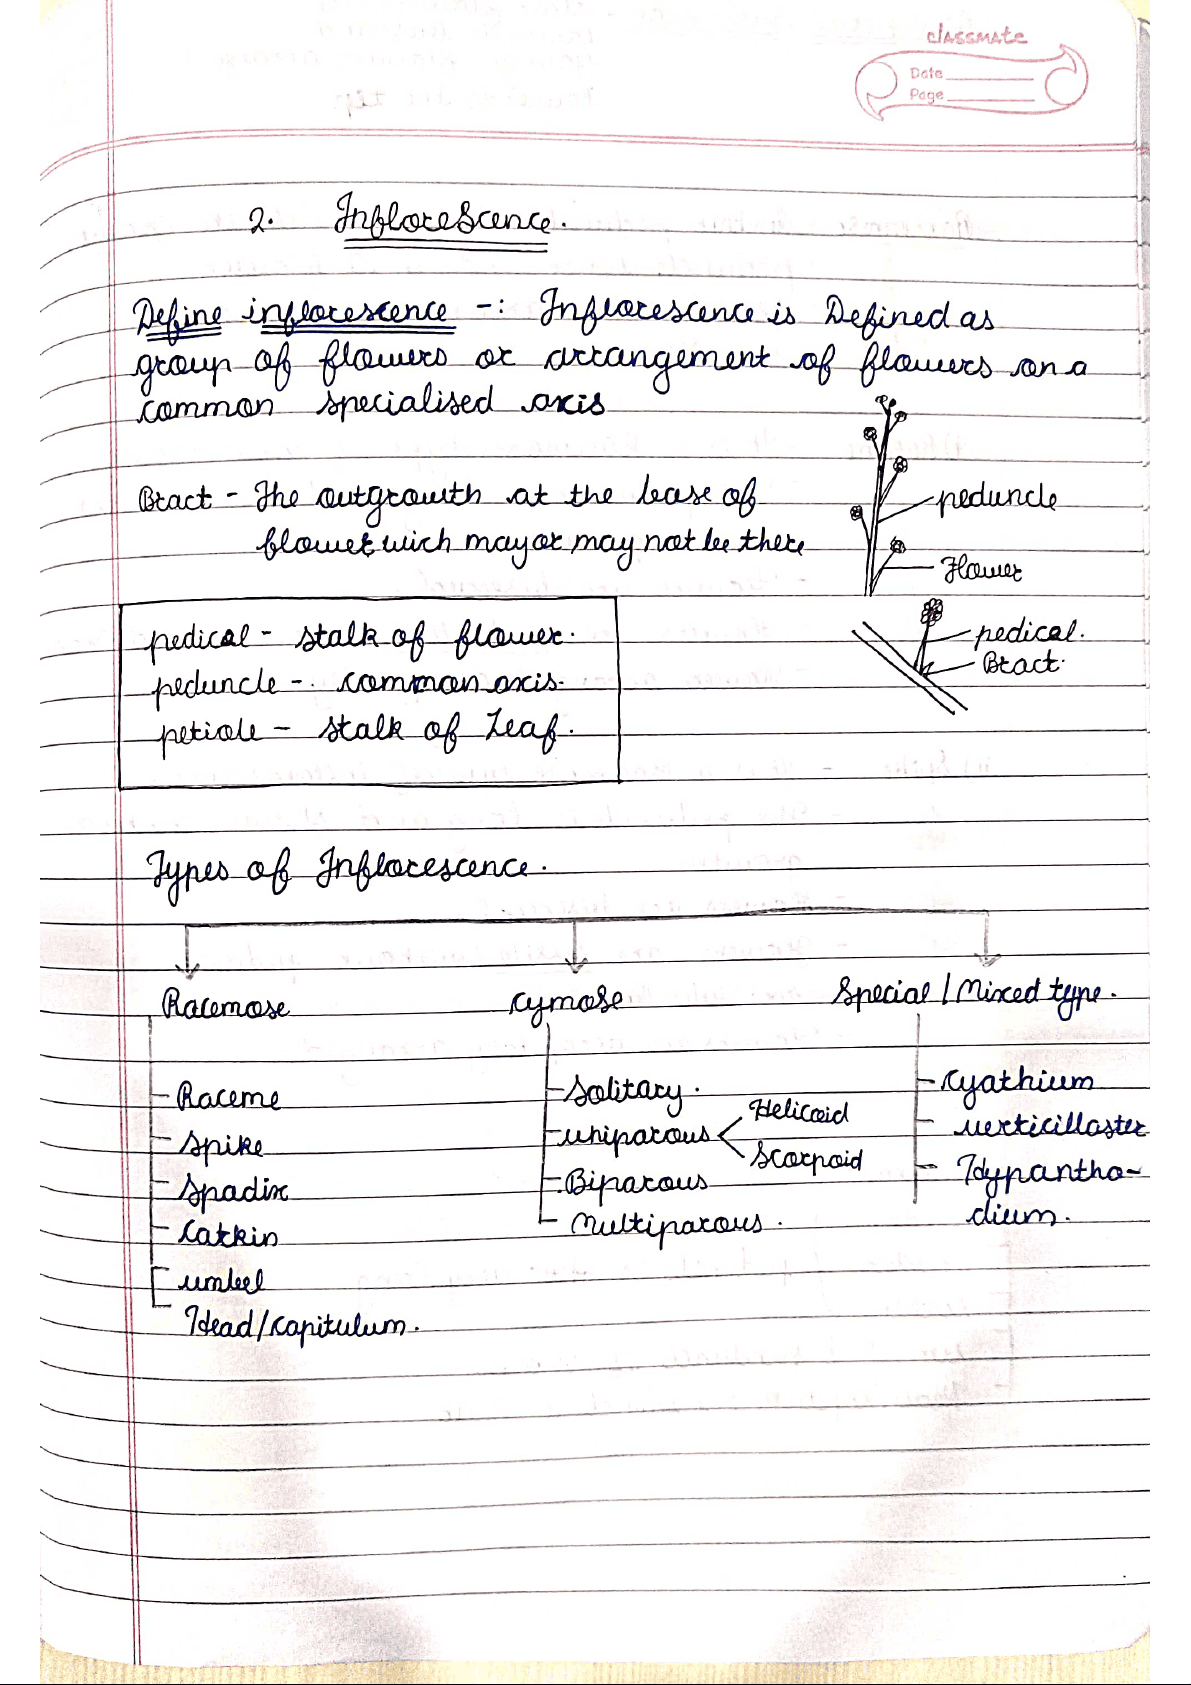 classmate
Date
Page
2. Inflorescence.
Define inflorescence -: Inflorescence is Defined as
group of flowers or arrangement of flowers on a
common specialised axis
Bract - The outgrowth at the base of
flower wich may or may not be there
peduncle
Flower
pedical.
Bract.
pedical - stalk of flower.
peduncle - common axis.
petiole - stalk of Leaf.
Types of Inflorescence.
Racemose cymose Special / Mixed type.
Raceme
Spike
Spadix
Catkin
umbel
Head/capitulum.
Solitary.
uniparous Helicoid
Scorpoid
Biparous
Multiparous.
Cyathium
verticillaster
Hypantho-
dium.